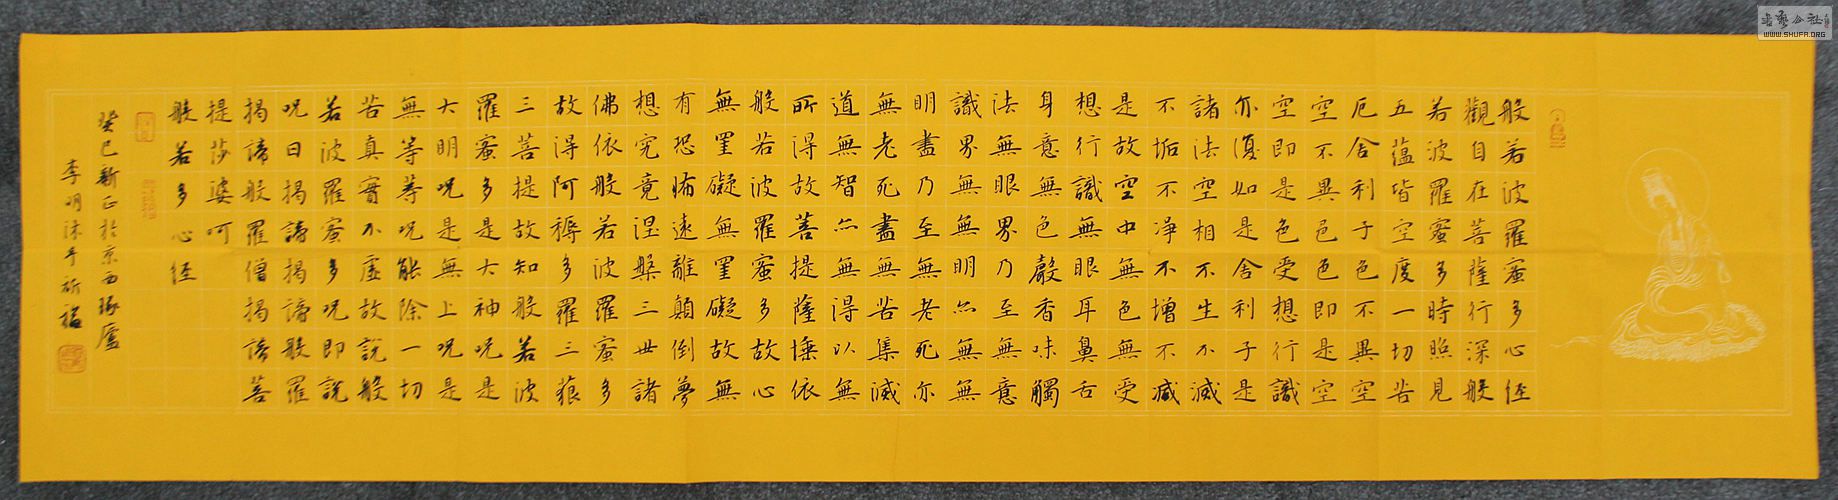 般若波羅蜜多心經
觀自在菩薩行深般
若波羅蜜多時照見
五蘊皆空度一切苦
厄舍利子色不異空
空不異色色即是空
空即是色受想行識
亦復如是舍利子是
諸法空相不生不滅
不垢不淨不增不減
是故空中無色無受
想行識無眼耳鼻舌
身意無色聲香味觸
法無眼界乃至無意
識界無無明亦無無
明盡乃至無老死亦
無老死盡無苦集滅
道無智亦無得以無
所得故菩提薩埵依
般若波羅蜜多故心
無罣礙無罣礙故無
有恐怖遠離顛倒夢
想究竟涅槃三世諸
佛依般若波羅蜜多
故得阿耨多羅三藐
三菩提故知般若波
羅蜜多是大神呪是
大明呪是無上呪是
無等等呪能除一切
苦真實不虛故說般
若波羅蜜多呪即說
呪曰揭諦揭諦般羅
揭諦般羅僧揭諦菩
提莎婆呵
般若多心經
癸巳新正於京西琢廬
李明沐手祈福
WWW.SHUFA.ORG